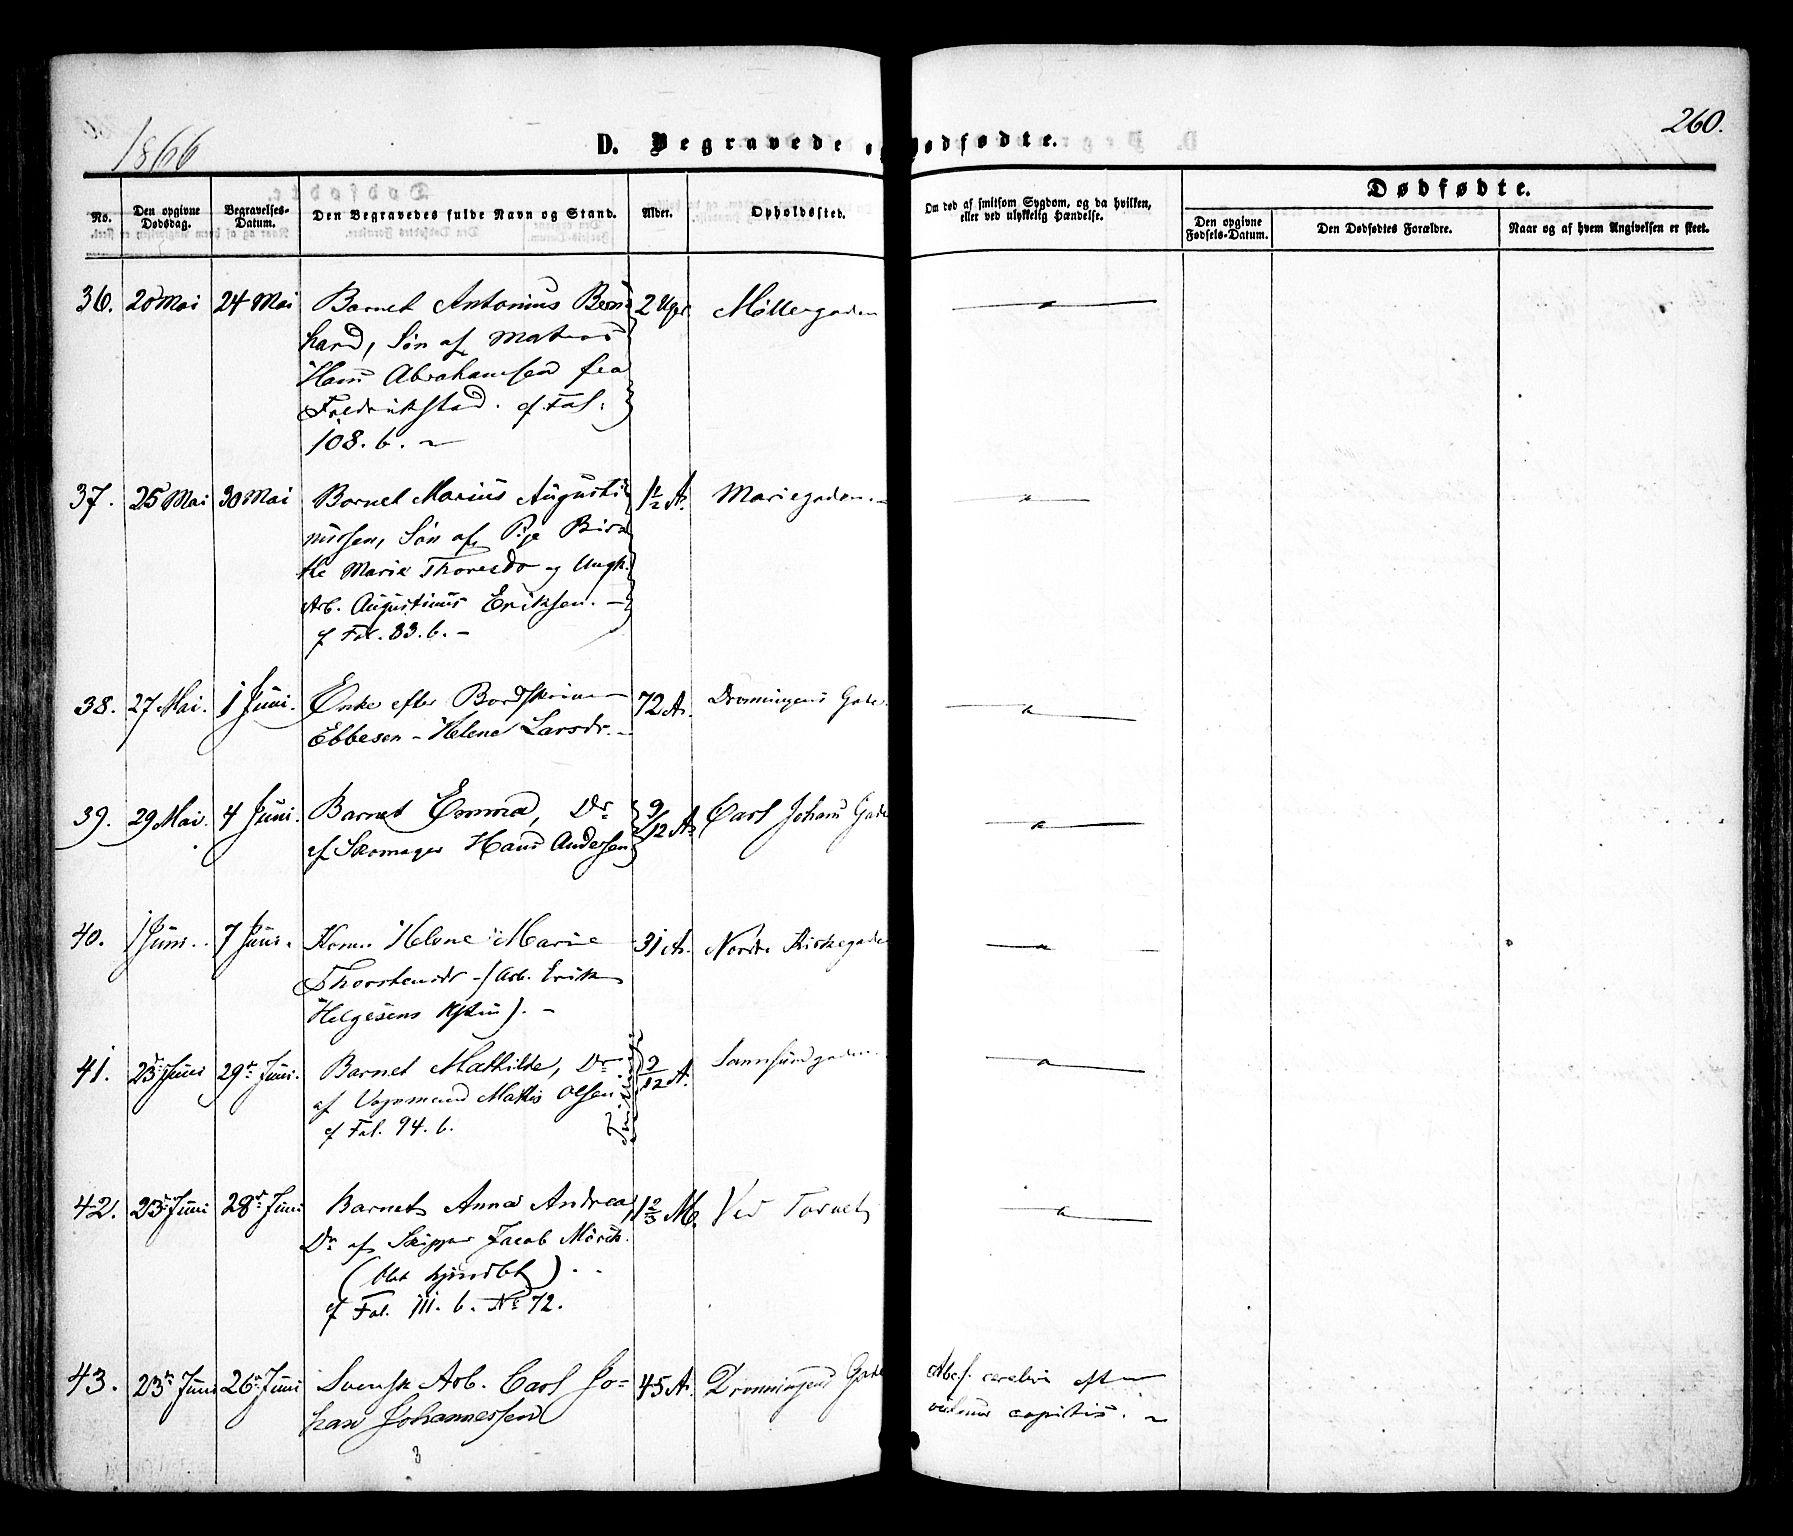 1866
260.
D. Begravede o Dødfødte.
No.
Den opgivne Dødsdag.
Begravelses-Datum.
Den Begravedes fulde Navn og Stand.
Alder.
Opholdssted.
Om død af smitsom Sygdom, og da hvilken, eller ved ulykkelig Hændelse.
Dødfødte.
Den opgivne Fødsels-Datum.
Den Dødfødtes Forældre.
Naar og af hvem Angivelsen er skeet.
36. 20 Mai 24 Mai Barnet Antonius Bern 2 Uger Møllergaden
hard, Søn af Matros
Hans Abrahamsen fra
Fredrikstad. cf. Fol.
108. b.
37. 25 Mai 30 Mai Barnet Marius Augusti 1½ A. Mariegaden.
nussen, Søn af Pige Birit
te Marie Thoresdr og Ungk.
Arb. Augustinus Eriksen.
cf Fol. 83. b.
38. 27 Mai. 1 Juni. Enke efter Bordskriver 72 A. Dronningens Gade.
Ebbesen - Helene Larsdr.
39. 29 Mai. 4 Juni. Barnet Emma, Dr 9/12 A. Carl Johans Gade
af Skomager Hans Andersen
40. 1 Juni. 7 Juni. Kone Helene Marie 31 A. Nordre Kirkegade
Thorstensdr (Arb. Erik
Helgesens
41. 23d Juni 29de Juni. Barnet Mathilde, Dr 3/12 A.
af Vognmand Mathis Olsen
cf Fol. 94. b.
Tvilling
42. 23d Juni 28de Juni Barnet Anna Andrea 1⅔ M. Ved Torvet
Dr af Skipper Jacob Mörch.
(blot hjemdøbt)
cf Fol. 111. b. No 72.
43. 23de Juni 26de Juni Svensk Arb. Carl Jo- 45 A. Dronningens Gade Absc. cerebri efter
han Johannessen vulnus capitis.
3